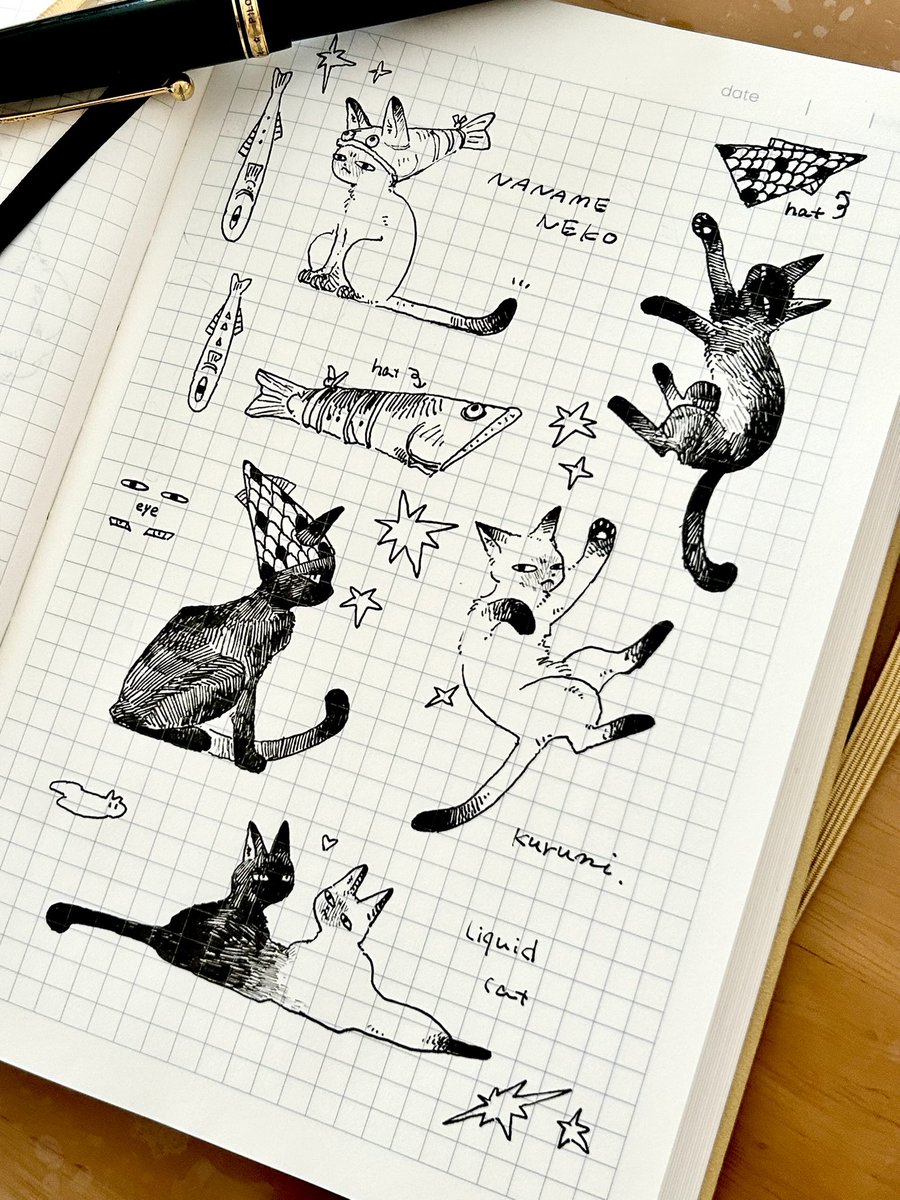 PILO
date
NANAME
NEKO
hat
hat
eye
Kurumi.
Liquid
cat